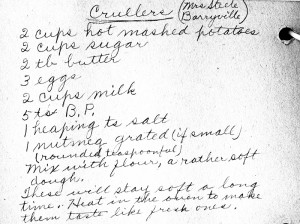 Crullers (Mrs Steele
Barryville)
2 cups hot mashed potatoes
2 cups sugar
2 tb butter
3 eggs
2 cups milk
5 ts B.P.
1 heaping ts salt
1 nutmeg grated (if small)
(rounded teaspoonful)
Mix with flour, a rather soft
dough.
These will stay soft a long
time. Heat in the oven to make
them taste like fresh ones.